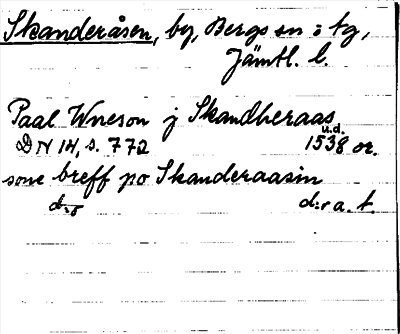 Skanderåsen, by, Bergs sn o tg,
Jämtl. l.
Paal Wneson j Skandheraas
u.d.
DN 14, s. 772 1538 or.
sone breff po Skanderaasin
d:o d:r a. t.